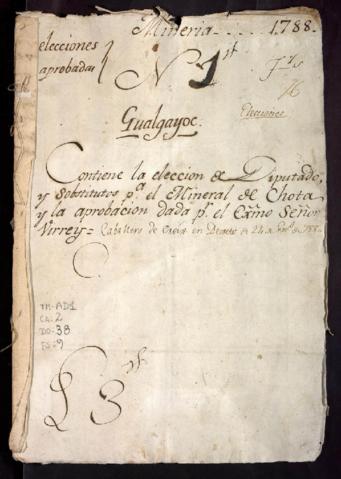 Mineria..... 1788.
elecciones
aprobadas
N 1
Elecciones
Gualgayoc.
Contiene la eleccion de Diputado,
y Sobstitutos pa. el Mineral de Chota
y la aprobacion dada pr. el Exmo Señor
Virrey= Caballero de Croix en Decreto de 24 de
TM-AD1
CA-2
DO-38
FS-9
L 3